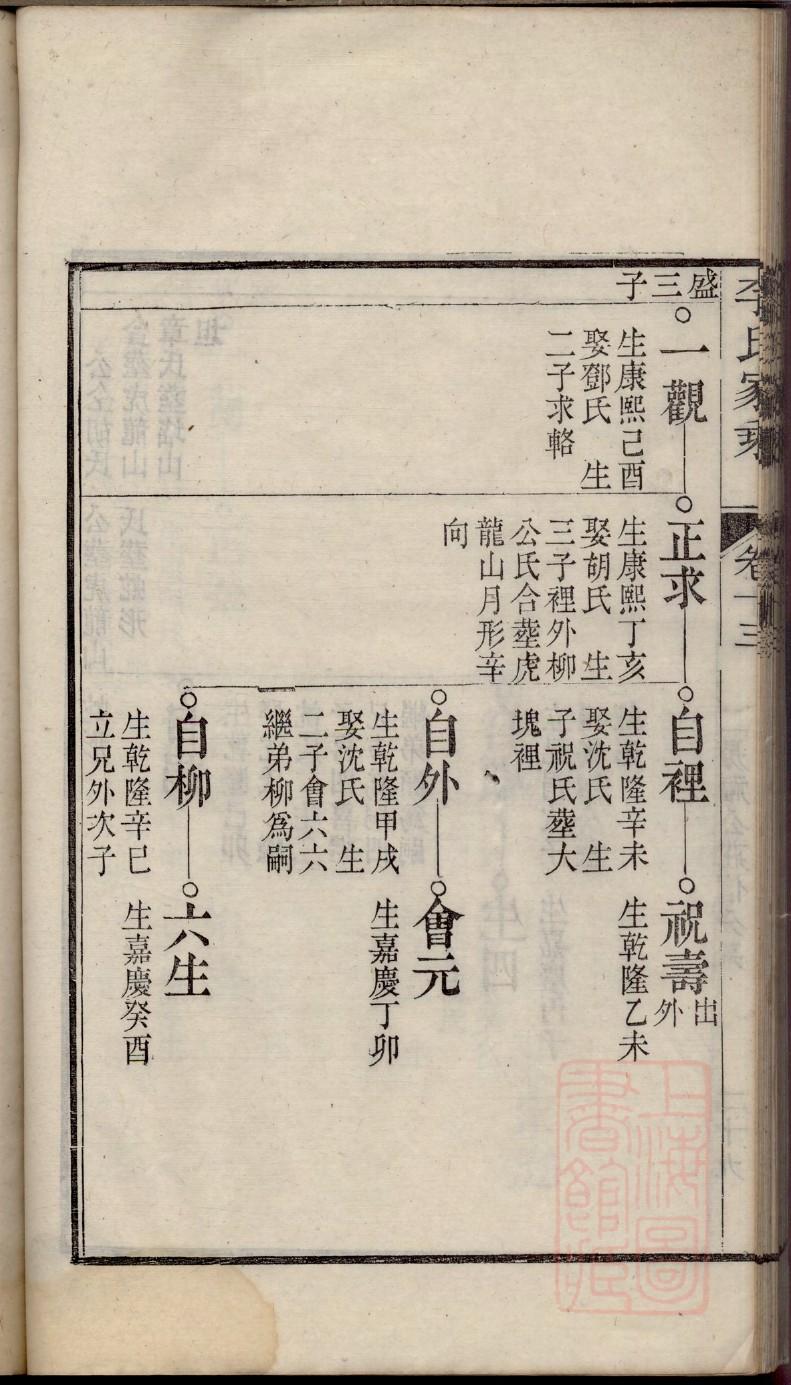 李氏家乘
卷十三
盛三子
一觀
生康熙己酉
娶鄧氏 生
二子求輅
正求
生康熙丁亥
娶胡氏 生
三子裡外柳
公氏合塟虎
龍山月形辛
向
自裡
生乾隆辛未
娶沈氏 生
子祝氏塟大
塊裡
祝壽出外
生乾隆乙未
自外
生乾隆甲戌
娶沈氏 生
二子會六六
繼弟柳為嗣
會元
生嘉慶丁卯
自柳
生乾隆辛巳
立兄外次子
六生
生嘉慶癸酉
上海圖
書館藏